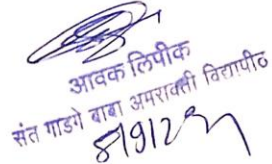 आवक लिपीक
संत गाडगे बाबा अमरावती विद्यापीठ